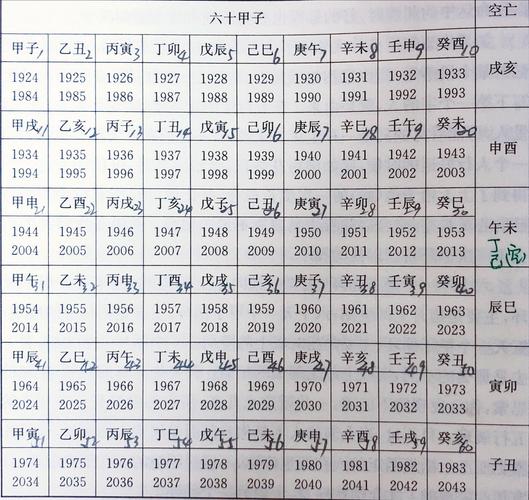 六十甲子 空亡
甲子1 乙丑2 丙寅3 丁卯4 戊辰5 己巳6 庚午7 辛未8 壬申9 癸酉10
1924 1925 1926 1927 1928 1929 1930 1931 1932 1933 戌亥
1984 1985 1986 1987 1988 1989 1990 1991 1992 1993
甲戌11 乙亥12 丙子13 丁丑14 戊寅15 己卯16 庚辰17 辛巳18 壬午19 癸未20
1934 1935 1936 1937 1938 1939 1940 1941 1942 1943 申酉
1994 1995 1996 1997 1998 1999 2000 2001 2002 2003
甲申21 乙酉22 丙戌23 丁亥24 戊子25 己丑26 庚寅27 辛卯28 壬辰29 癸巳30
1944 1945 1946 1947 1948 1949 1950 1951 1952 1953 午未
2004 2005 2006 2007 2008 2009 2010 2011 2012 2013 丁己
甲午31 乙未32 丙申33 丁酉34 戊戌35 己亥36 庚子37 辛丑38 壬寅39 癸卯40
1954 1955 1956 1957 1958 1959 1960 1961 1962 1963 辰巳
2014 2015 2016 2017 2018 2019 2020 2021 2022 2023
甲辰41 乙巳42 丙午43 丁未44 戊申45 己酉46 庚戌47 辛亥48 壬子49 癸丑50
1964 1965 1966 1967 1968 1969 1970 1971 1972 1973 寅卯
2024 2025 2026 2027 2028 2029 2030 2031 2032 2033
甲寅51 乙卯52 丙辰53 丁巳54 戊午55 己未56 庚申57 辛酉58 壬戌59 癸亥60
1974 1975 1976 1977 1978 1979 1980 1981 1982 1983 子丑
2034 2035 2036 2037 2038 2039 2040 2041 2042 2043